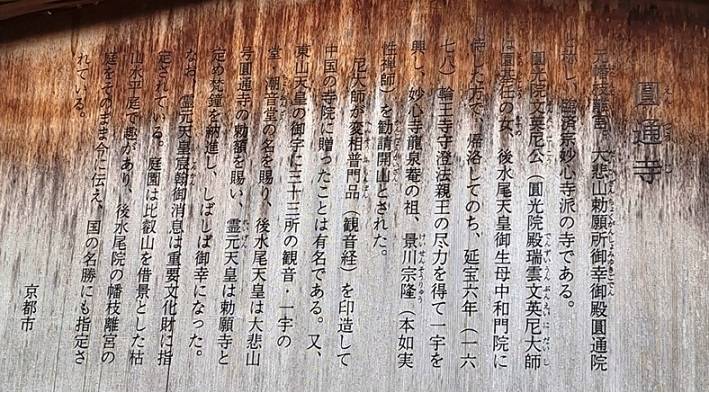 圓通寺
元幡枝離宮。大悲山勅願所御幸御殿圓通院
と称し、臨済宗妙心寺派の寺である。
圓光院文英尼公(圓光院殿瑞雲文英尼大師
は園基任の女、後水尾天皇御生母中和門院に
侍した方で、帰洛してのち、延宝六年(一六
七八)輪王寺守澄法親王の尽力を得て一宇を
興し、妙心寺龍泉菴の祖、景川宗隆(本如実
性禅師)を勧請開山とされた。
尼大師が変相普門品(観音経)を印造して
中国の寺院に贈ったことは有名である。又、
東山天皇の御宇に三十三所の観音・一宇の
堂・潮音堂の名を賜り、後水尾天皇は大悲山
号圓通寺の勅額を賜い、霊元天皇は勅願寺と
定め梵鐘を納進し、しばしば御幸になった。
なお、霊元天皇宸翰御消息は重要文化財に指
定されている。庭園は比叡山を借景とした枯
山水平庭で趣があり、後水尾院の幡枝離宮の
庭をそのまま今に伝え、国の名勝にも指定さ
れている。
京都市